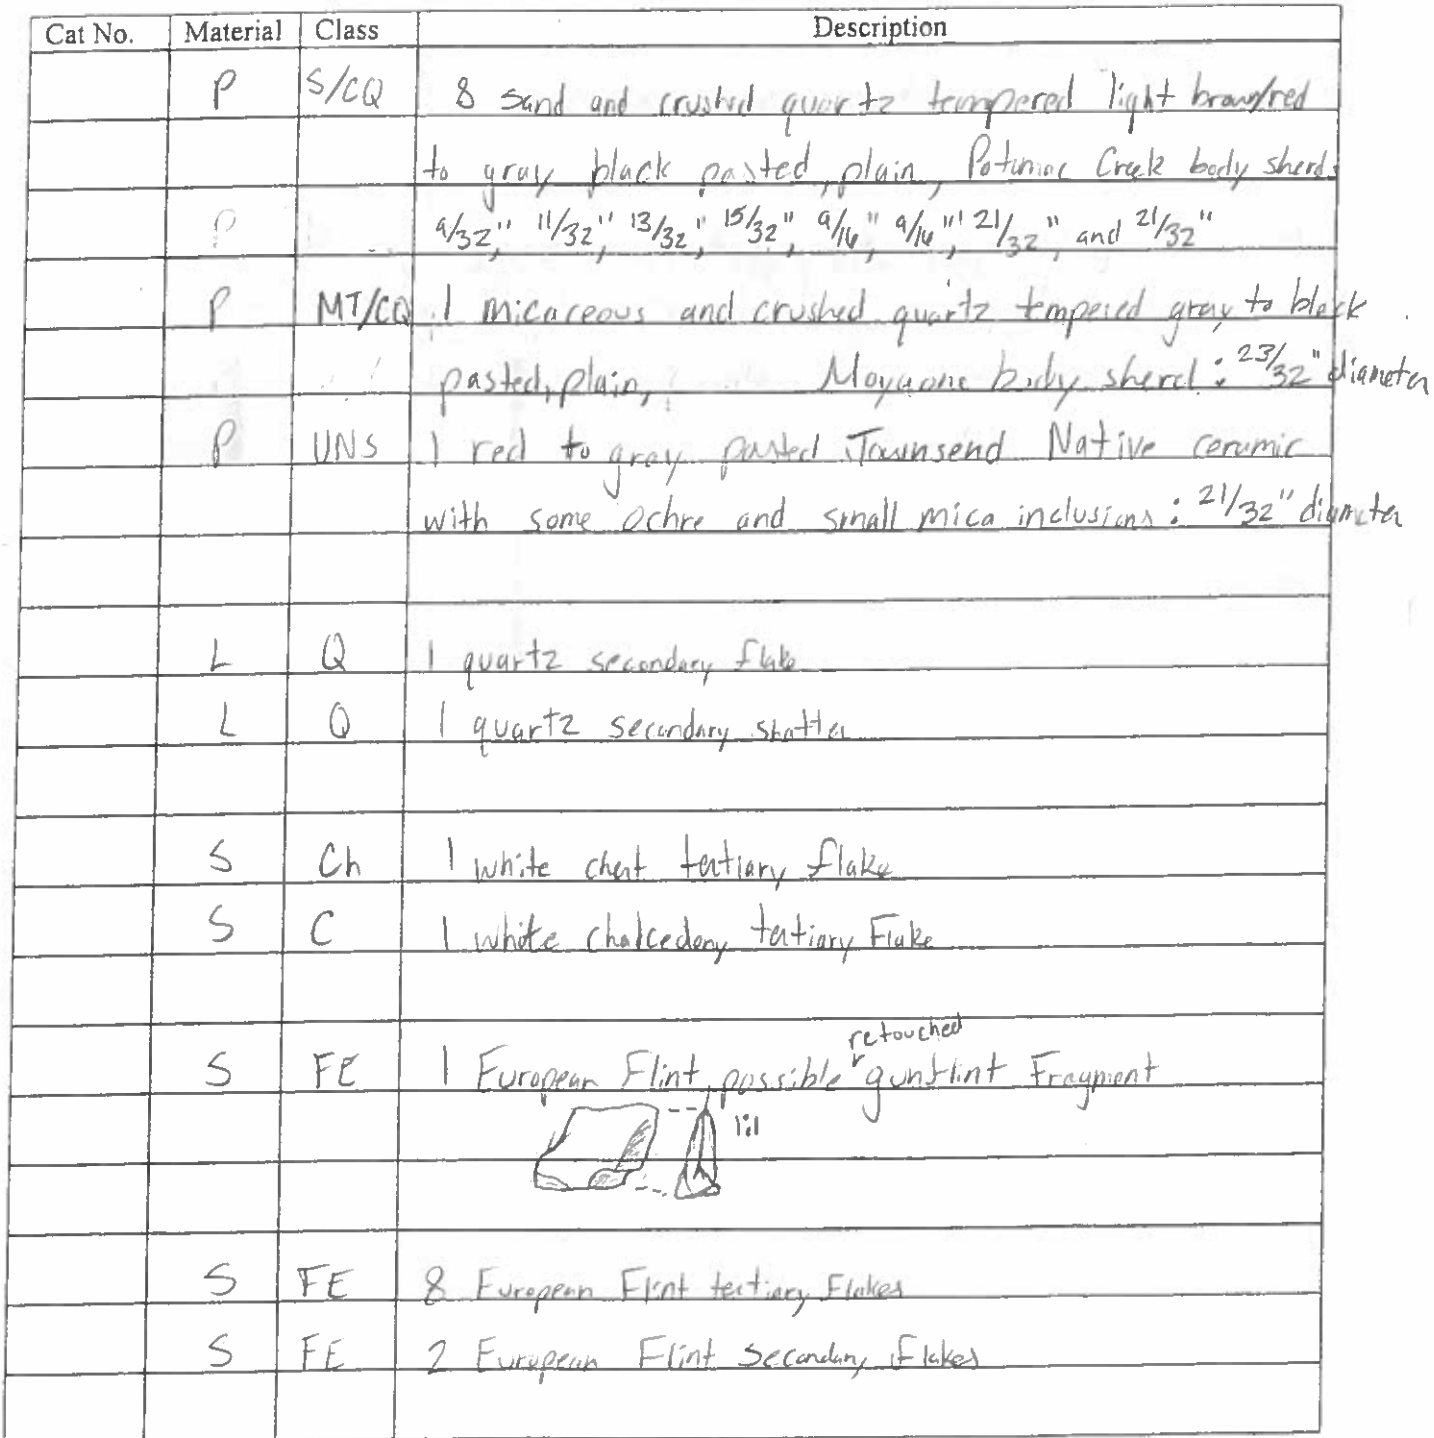 Cat No. Material Class Description
P S/CQ 8 sand and crushed quartz tempered light brown/red
to gray black pasted, plain, Potomac Creek body sherds
P 9/32", 11/32", 13/32", 15/32", 9/16", 9/16", 21/32", and 21/32"
P MT/CQ 1 micaceous and crushed quartz tempered gray to black
pasted, plain, Moyaone body sherd: 23/32" diameter
P UNS 1 red to gray pasted Townsend Native ceramic
with some ochre and small mica inclusions: 21/32" diameter
L Q 1 quartz secondary flake
L Q 1 quartz secondary shatter
S Ch 1 white chert tertiary flake
S C 1 white chalcedony tertiary Flake
retouched
S FE 1 European Flint, possible gunflint Fragment
1:1
S FE 8 European Flint tertiary Flakes
S FE 2 European Flint Secondary Flakes